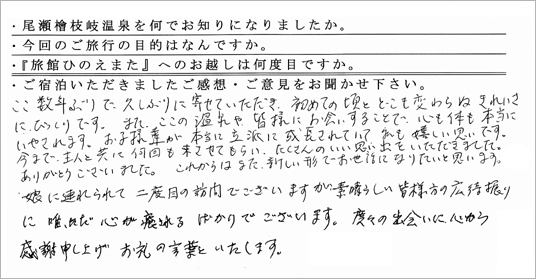 ・尾瀬檜枝岐温泉を何でお知りになりましたか。
・今回のご旅行の目的はなんですか。
・『旅館ひのえまた』へのお越しは何度目ですか。
・ご宿泊いただきましたご感想・ご意見をお聞かせ下さい。
ここ数年ぶりで、久しぶりに寄せていただき、初めての頃とどこも変わらぬきれいさ
にびっくりです。また、ここの温泉や皆様にお会いすることで、心も体も本当に
いやされます。お子様達が本当に立派に成長されていて私も嬉しい思いです。
今まで、主人と共に何回も来させてもらい、たくさんのいい思い出をいただきました。
ありがとうございました。これからはまた、新しい形でお世話になりたいと思います。
娘に連れられて二度目の訪問でございますが素晴らしい皆様方の応待振り
に唯ただ心が癒されるばかりでございます。度々の出会いに心から
感謝申し上げお礼の言葉といたします。